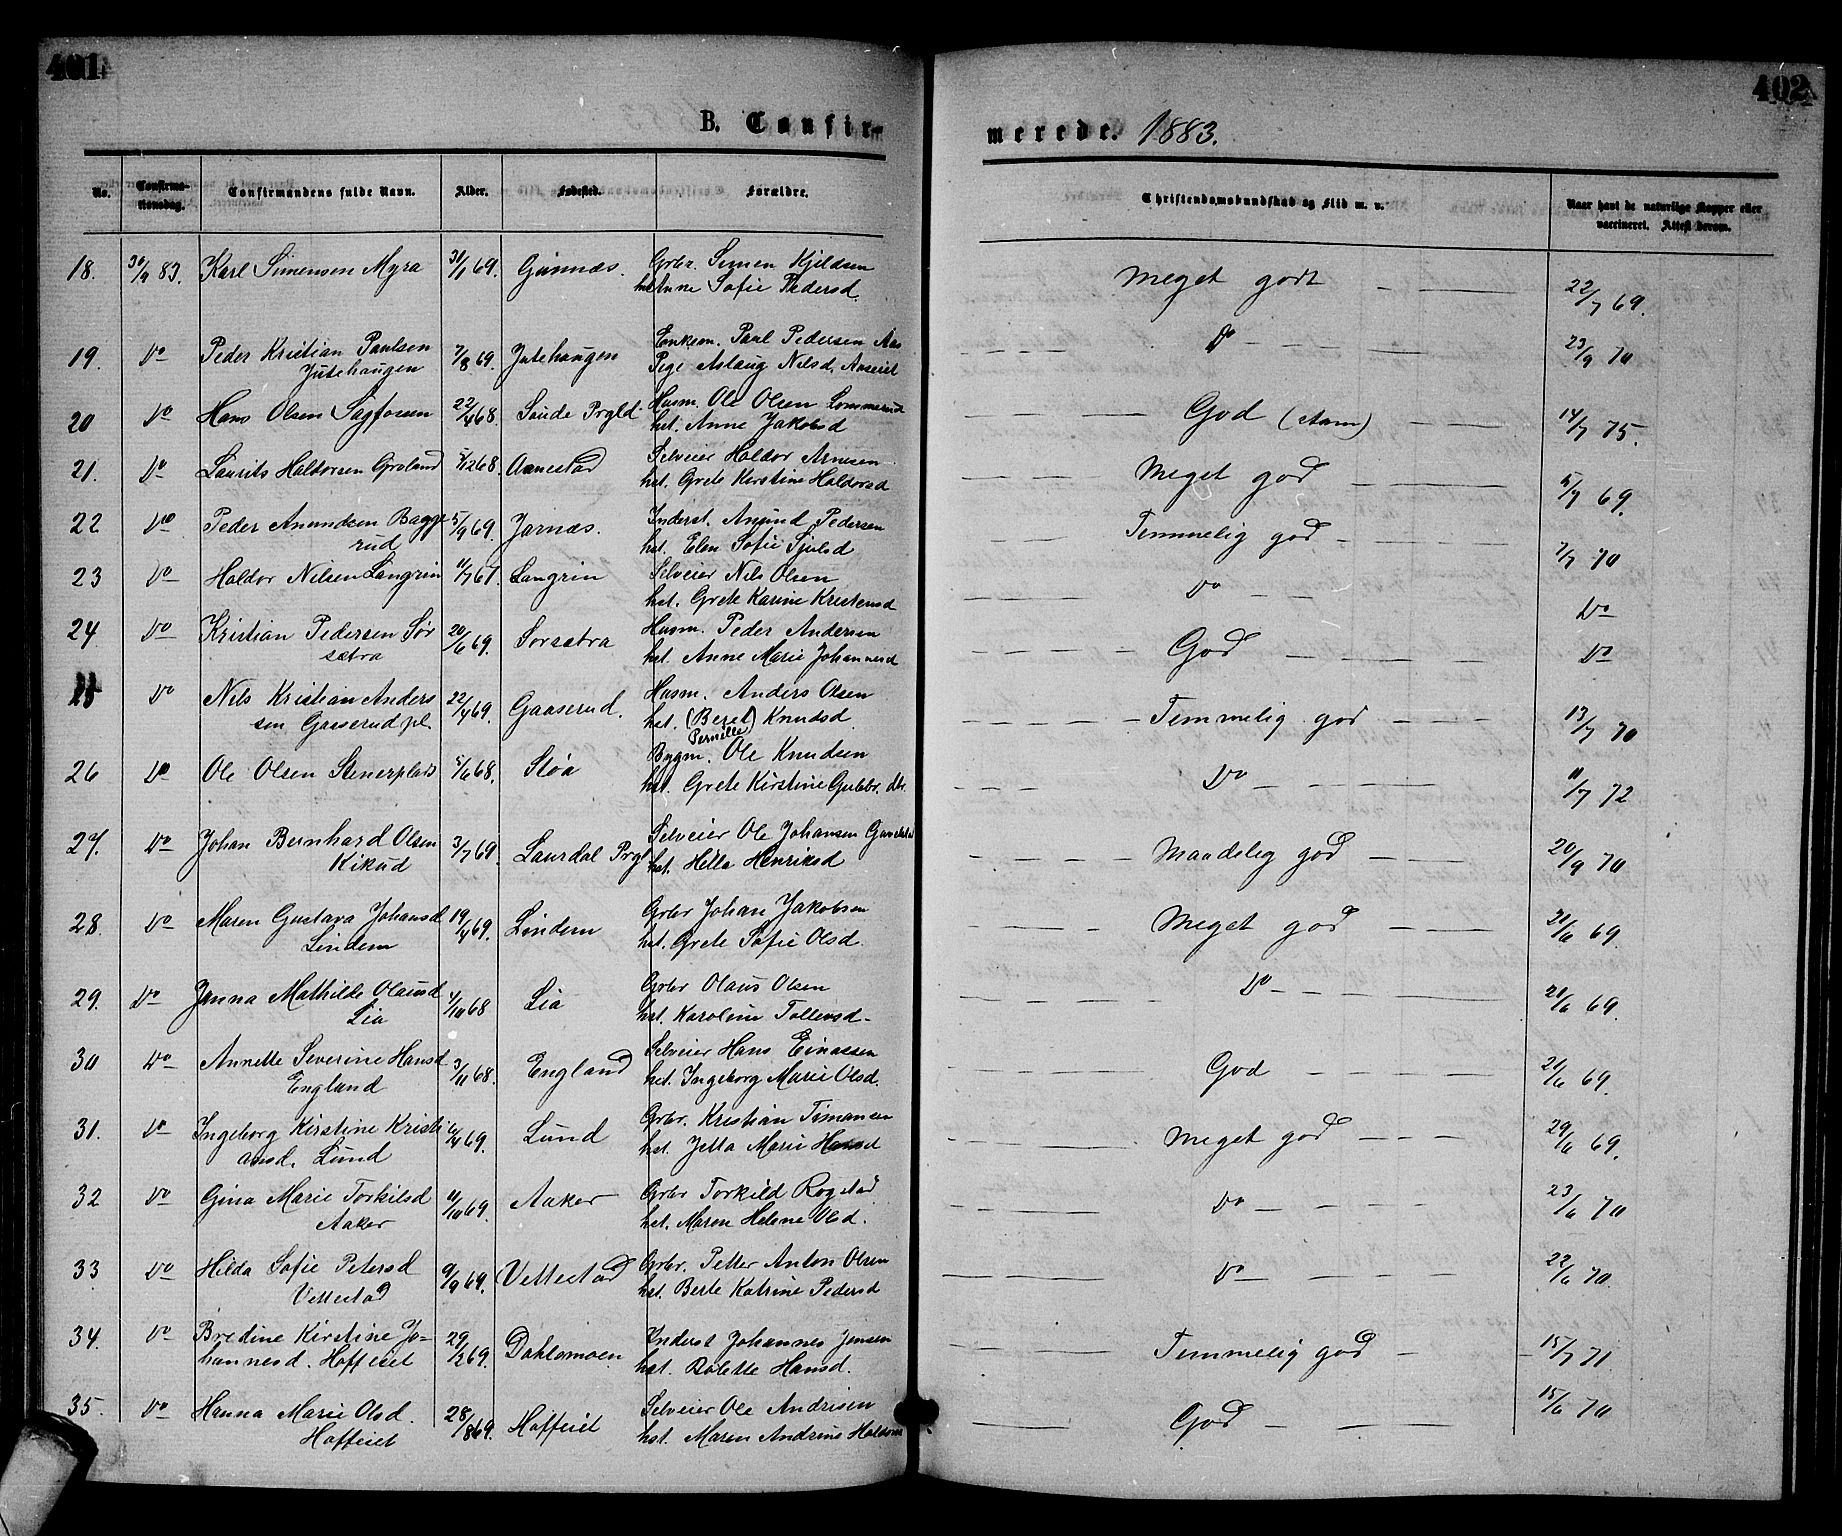 401
402
B. Confir-
merede. 1883.
No.
Confirma-
tionsdag.
Confirmandens fulde Navn.
Alder.
Fødested.
Forældre.
Christendomskundskab og Flid m. v.
Naar havt de naturlige Kopper eller
vaccineret. Attest derom.
18. 30/9 83. Karl Simensen Myra 30/1 69. Gunnæs. Grbr. Simen Kjeldsen
Anne Sofie Pedersd.
Meget godt 22/7 69.
19. Do Peder Kristian Paulsen 7/8 69. Jutehaugen Enkem. Paul Pedersen Aas
Jutehaugen Pige Aslaug Nilsd. Aaseiet
Do 23/9 70
20 Do Hans Olsen Sagfosen 22/4 68. Saude Prgld. Husm. Ole Olsen Lommerud
hst. Anne Jakobsd
God 14/7 75.
21. Do Laurits Haldorsen Groland 5/12 68. Aanestad Selveier Haldor Arnesen
hst. Grete Kirstine Haldorsd
Meget god 5/7 69.
22 Do Peder Anundsen Bagge 5/9 69. Jarnæs. Inderst. Anund Pedersen
rud hst. Elen Sofie Sjulsd
Temmelig god 7/7 70
23 Do Haldor Nilsen Langrin 11/7 67. Langrin Selveier Nils Olsen
hst. Grete Karine Kristensd
Do Do
24 Do Kristian Pedersen Sør 20/6 69. Sørsætra Husm. Peder Andersen
sætra hst. Anne Marie Johannesd
God Do
25 Do Nils Kristian Anders 22/4 69. Gaaserud. Husm. Anders Olsen
sen Gaaserud pl. hst. (Beret) Knudsd
Pernille
Temmelig god 13/7 70
26 Do Ole Olsen Stenerplads 5/6 68. Støa Bygm. Ole Knudsen
hst. Grete Kirstine Gulbr. dtr.
Do 11/7 72
27. Do Johan Bernhard Olsen 3/7 69. Laurdal Prgl Selveier Ole Johansen
Kikud hst. Hella Henriksd
Maadelig god 20/9 70
28. Do Maren Gustava Johansd 19/4 69. Lindem Grbr Johan Jakobsen
Lindem hst. Grete Sofie Olsd.
Meget god 21/6 69.
29. Do Janna Mathilde Olausd 4/10 68 Lia Grbr Olaus Olsen
Lia hst. Karoline Tollevsd-
Do 21/6 69.
30 Do Annette Severine Hansd 3/11 68. England Selveier Hans Einassen
England hst. Ingeborg Marie Olsd.
God 21/6 69.
31. Do Ingeborg Kirstine Kristi 6/4 69. Lund Grbr. Kristian Timansen
ansd. Lund hst. Jetta Marie Hansd
Meget god 29/6 69.
32 Do Gina Marie Torkilsd 11/10 69. Aaker Grbr Torkild Rogstad
Aaker hst. Maren Helene Olsd.
Do 23/6 70
33 Do Hilda Sofie Petersd 9/9 69. Vettestad Grbr. Petter Anton Olsen
Vettestad hst. Berte Katrine Pedersd
Do 22/6 70.
34. Do Bredine Kirstine Jo- 29/2 69. Dahlsmoen Inderst Johannes Jensen
hannesd. Hoffeiet hst. Bolette Hansd.
Temmelig god 15/7 71.
35. Do Hanna Marie Olsd. 28/8 69. Hoffeiet Selveier Ole Andrisen
Hoffeiet hst. Maren Andrine
God 15/6 70